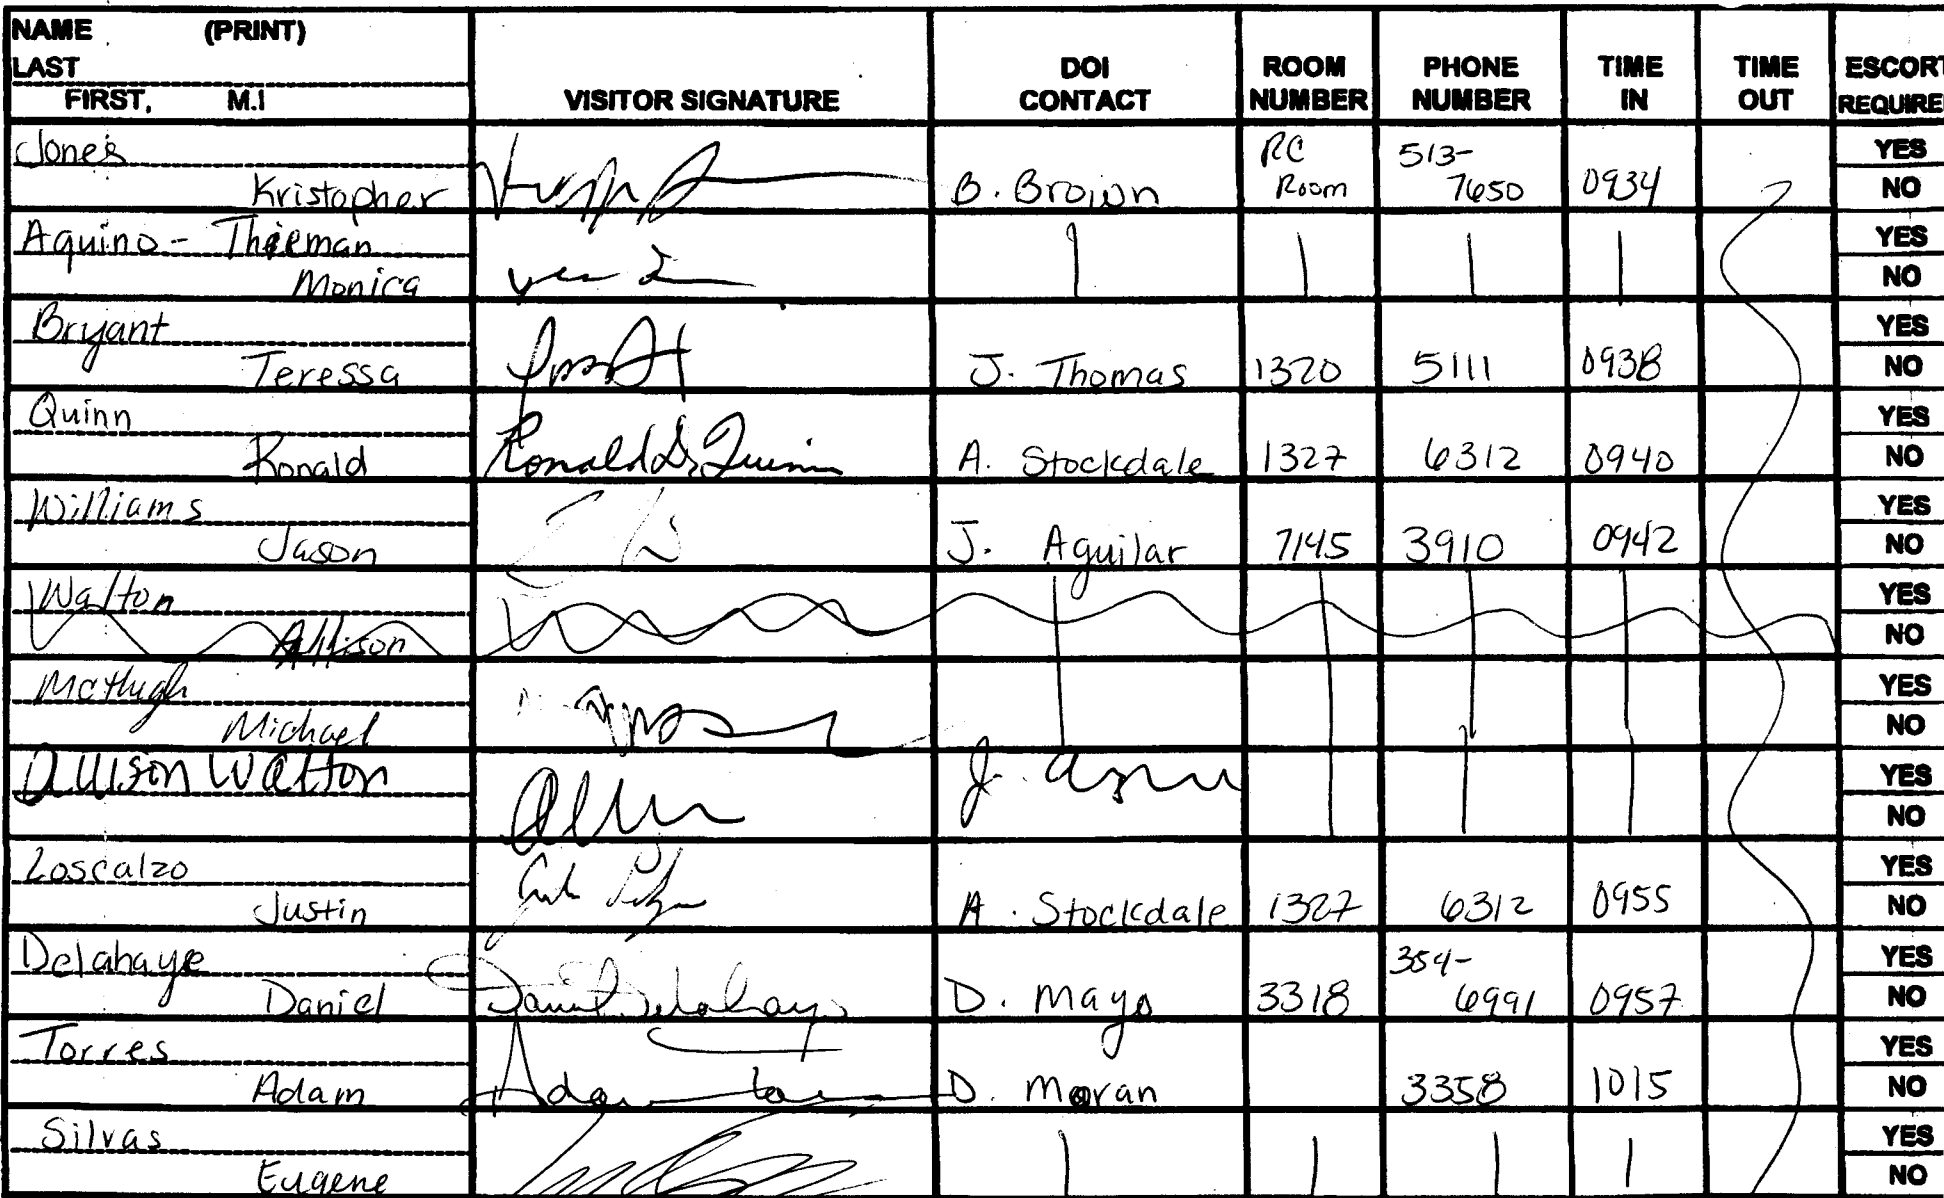 NAME (PRINT)
LAST
FIRST, M.I
VISITOR SIGNATURE
DOI CONTACT
ROOM NUMBER
PHONE NUMBER
TIME IN
TIME OUT
ESCORT REQUIRE
Jones RC 513- YES
Kristopher B. Brown Room 7650 0934 NO
Aquino - Thieman YES
Monica NO
Bryant YES
Teressa J. Thomas 1320 5111 0938 NO
Quinn YES
Ronald Ronald D. Quinn A. Stockdale 1327 6312 0940 NO
Williams YES
Jason J. Aguilar 7145 3910 0942 NO
Walton YES
Allison NO
McHugh YES
Michael NO
Allison Walton J. YES
NO
Loscalzo YES
Justin A. Stockdale 1327 6312 0955 NO
Delahaye 354- YES
Daniel Daniel Delahaye D. Mayo 3318 6991 0957 NO
Torres YES
Adam Adam D. Moran 3358 1015 NO
Silvas YES
Eugene NO